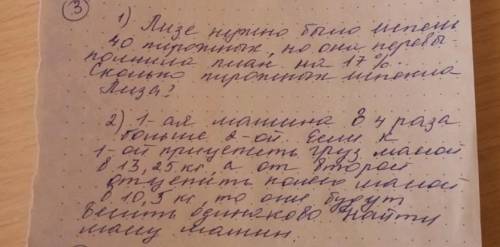 3
1) Лизе нужно было испечь
40 пирожных, но она перевы-
полнила план на 17%.
Сколько пирожных испекла
Лиза?
2) 1-ая машина в 4 раза
больше 2-ой. Если к
1-ой прицепить груз массой
в 13,25 кг, а от второй
отцепить массой
в 10,5 кг, то они будут
весить одинаково. Найти
массу машин.